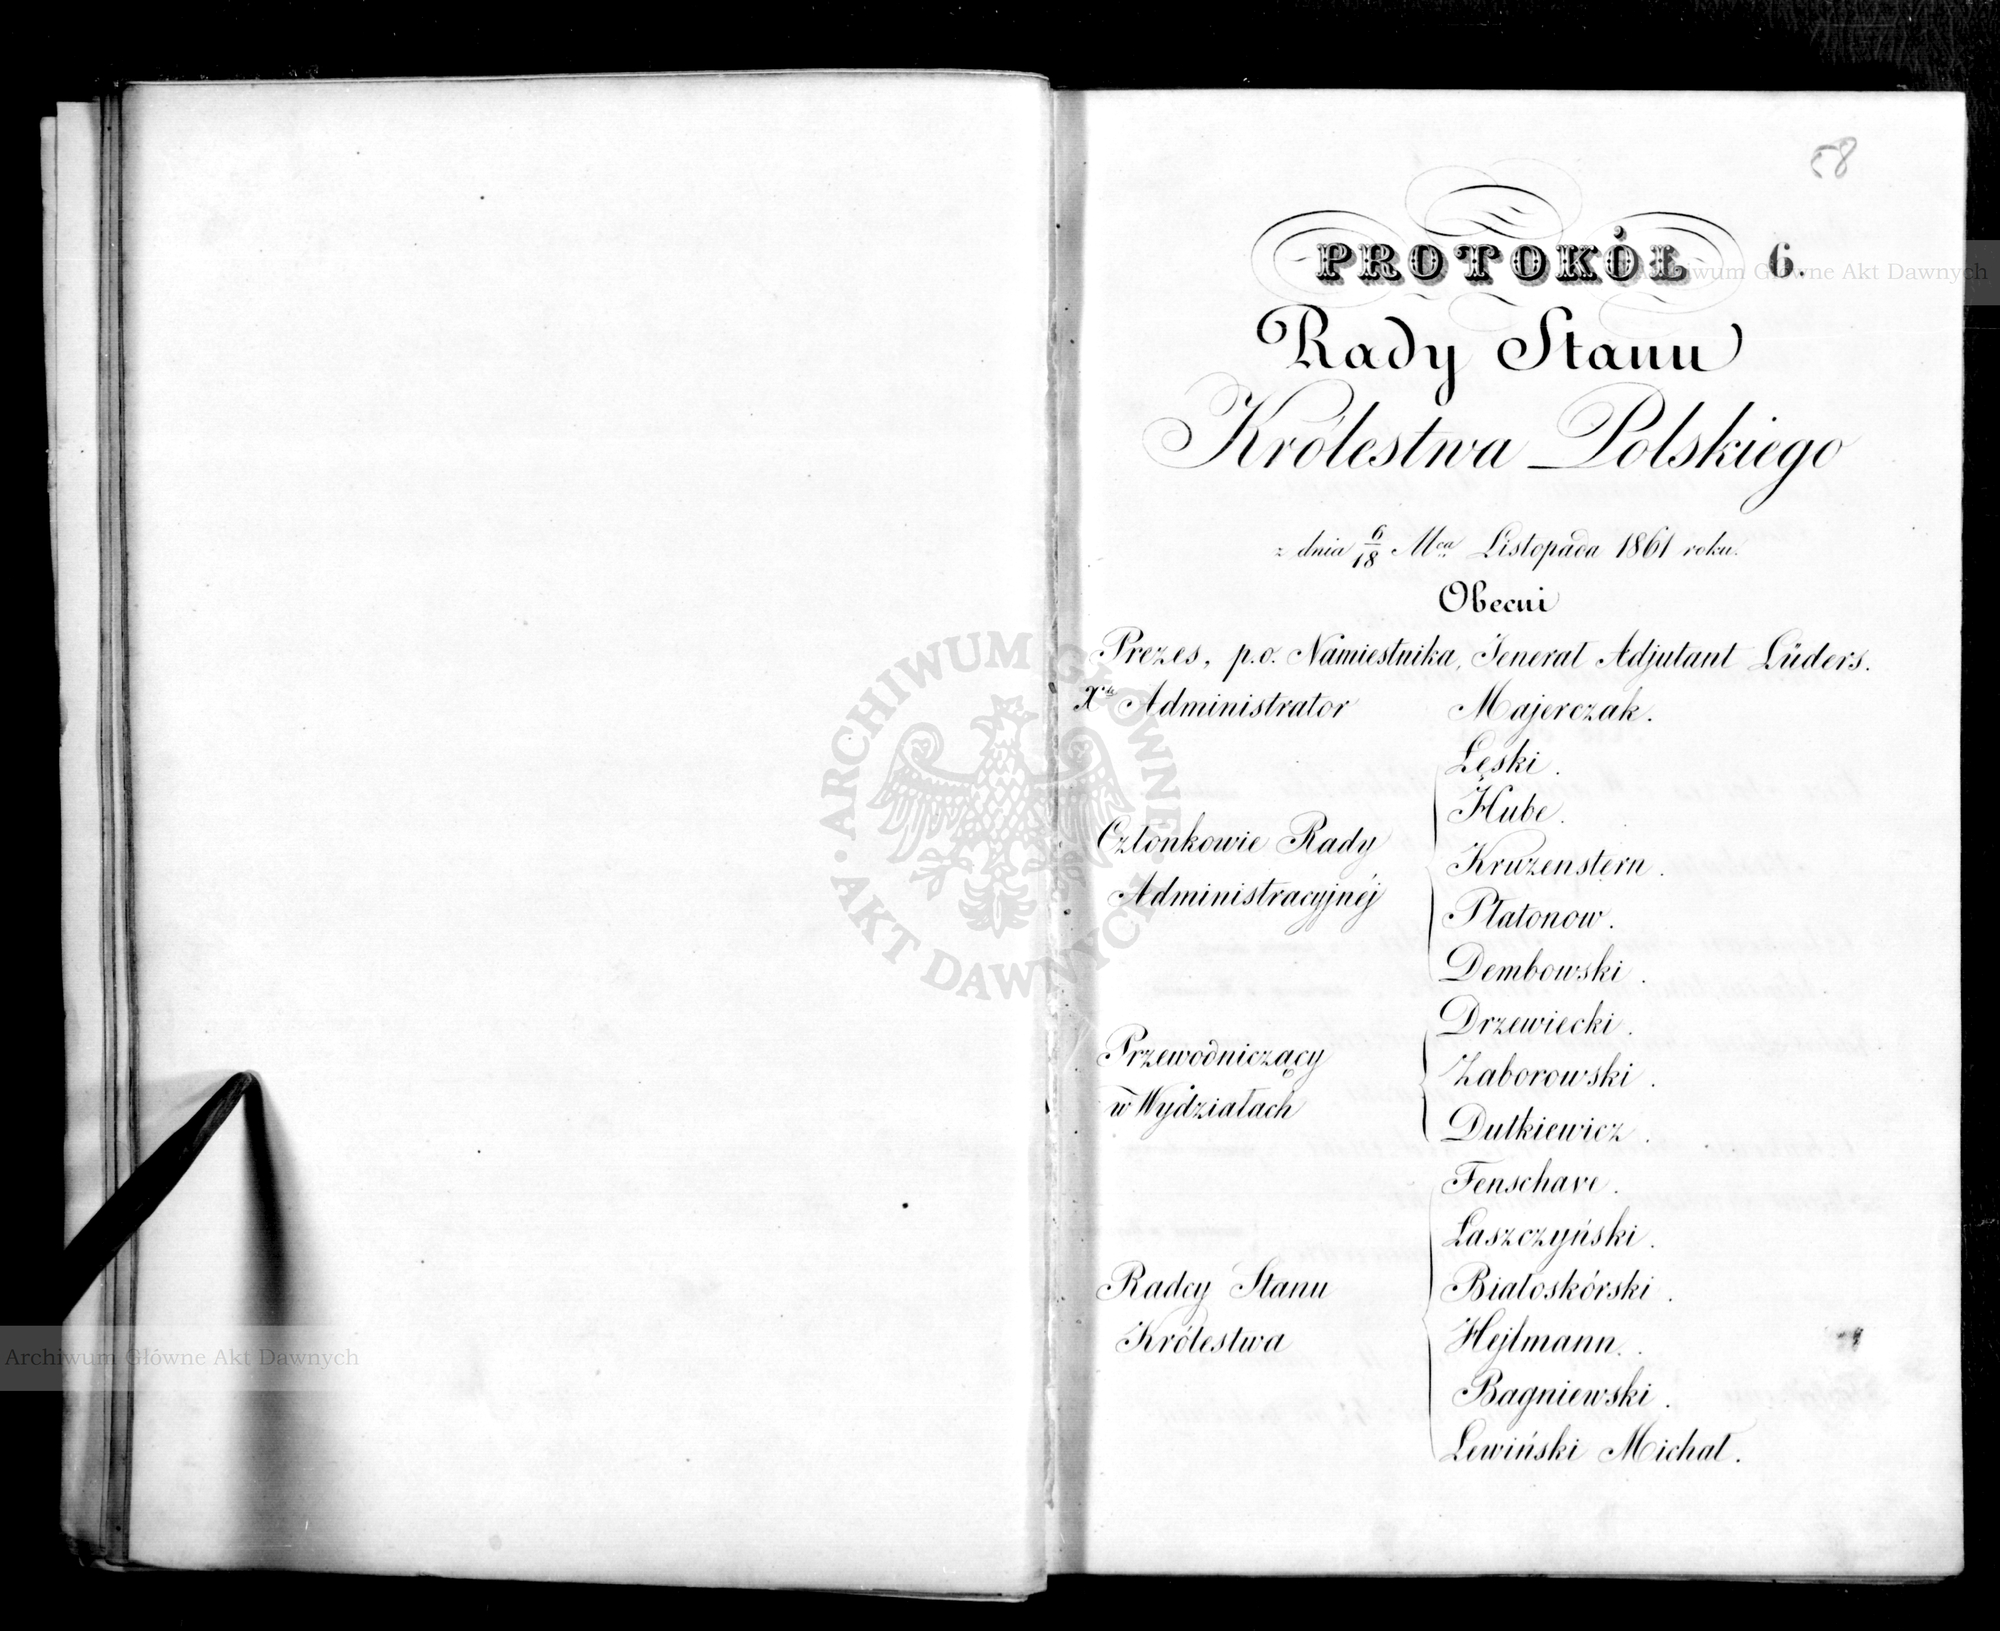 58
PROTOKÓŁ 6.
Rady Stanu
Królestwa Polskiego
z dnia 6/18 Mca Listopada 1861 roku.
Obecni
Prezes, p.o. Namiestnika, Jenerał Adjutant Lüders.
Xdz Administrator Majerczak.
Członkowie Rady Administracyjnéj
Łęski.
Hube.
Kruzenstern.
Płatonow.
Dembowski.
Przewodniczący w Wydziałach
Drzewiecki.
Zaborowski.
Dutkiewicz.
Radcy Stanu Królestwa
Fenschave.
Łaszczyński.
Białoskórski.
Hejlmann.
Bagniewski.
Lewiński Michał.
ARCHIWUM GŁÓWNE AKT DAWNYCH
Archiwum Główne Akt Dawnych
Archiwum Główne Akt Dawnych